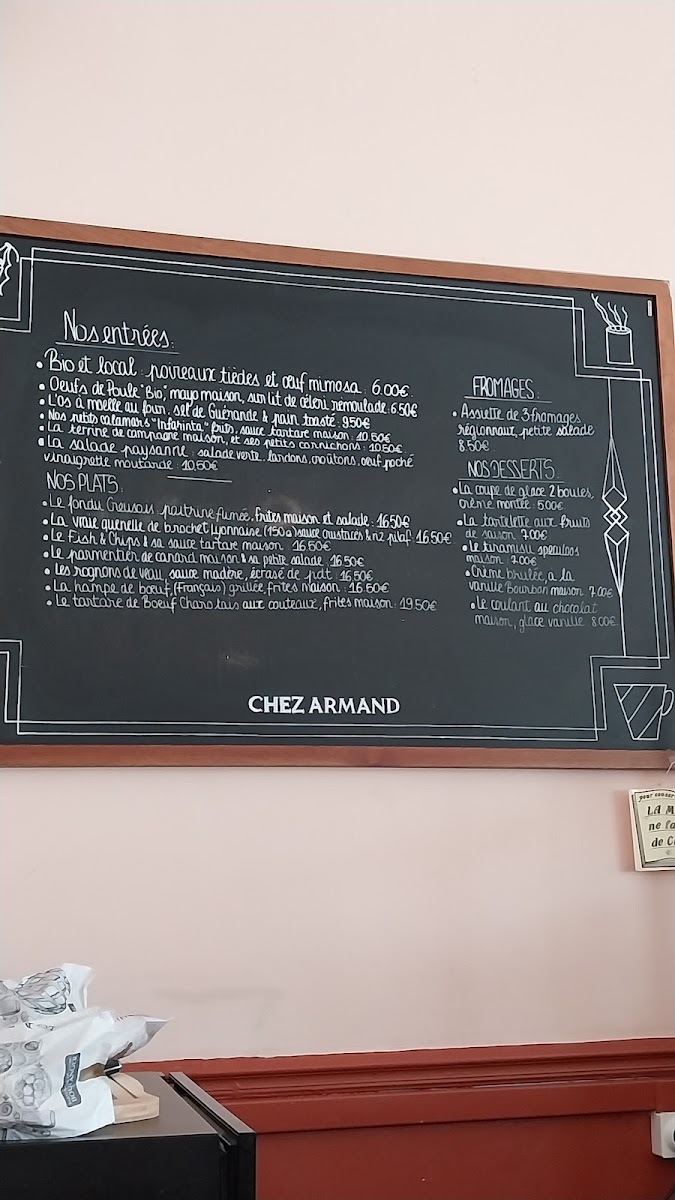 Nos entrées:
• Bio et local: poireaux tièdes et œuf mimosa: 6.00€.
• Oeufs de Poule "Bio", mayo maison, sur lit de céleri rémoulade: 6.50€
• L'os à moelle au four, sel de Guérande & pain toasté: 9.50€
• Nos petits calamars "Intarinta" frits, sauce tartare maison: 10.50€
• La terrine de campagne maison, et ses petits cornichons: 10.50€
• La salade paysanne: salade verte, lardons, croûtons, œuf poché
vinaigrette moutarde: 10,50€
NOS PLATS:
• Le fondu Creusois, poitrine fumée, frites maison et salade: 16.50€
• La vraie quenelle de brochet lyonnaise (150g) sauce crustacés & riz pilaf: 16.50€
• Le Fish & Chips & sa sauce tartare maison: 16.50€
• Le parmentier de canard maison & sa petite salade: 16.50€
• Les rognons de veau, sauce madère, écrasé de pdt: 16,50€
• La hampe de bœuf, (Français) grillée, frites maison: 16.50€
• Le tartare de Boeuf Charolais aux couteaux, frites maison: 19.50€
FROMAGES:
• Assiette de 3 fromages
régionnaux, petite salade
8.50€
NOS DESSERTS:
• La coupe de glace 2 boules,
crème montée: 5.00€
• La tartelette aux fruits
de saison: 7.00€
• Le tiramisu speculoos
maison: 7.00€
• Crème brûlée, à la
vanille Bourbon maison: 7.00€
• Le coulant au chocolat
maison, glace vanille: 8.00€
CHEZ ARMAND
LA M
ne l'a
de C